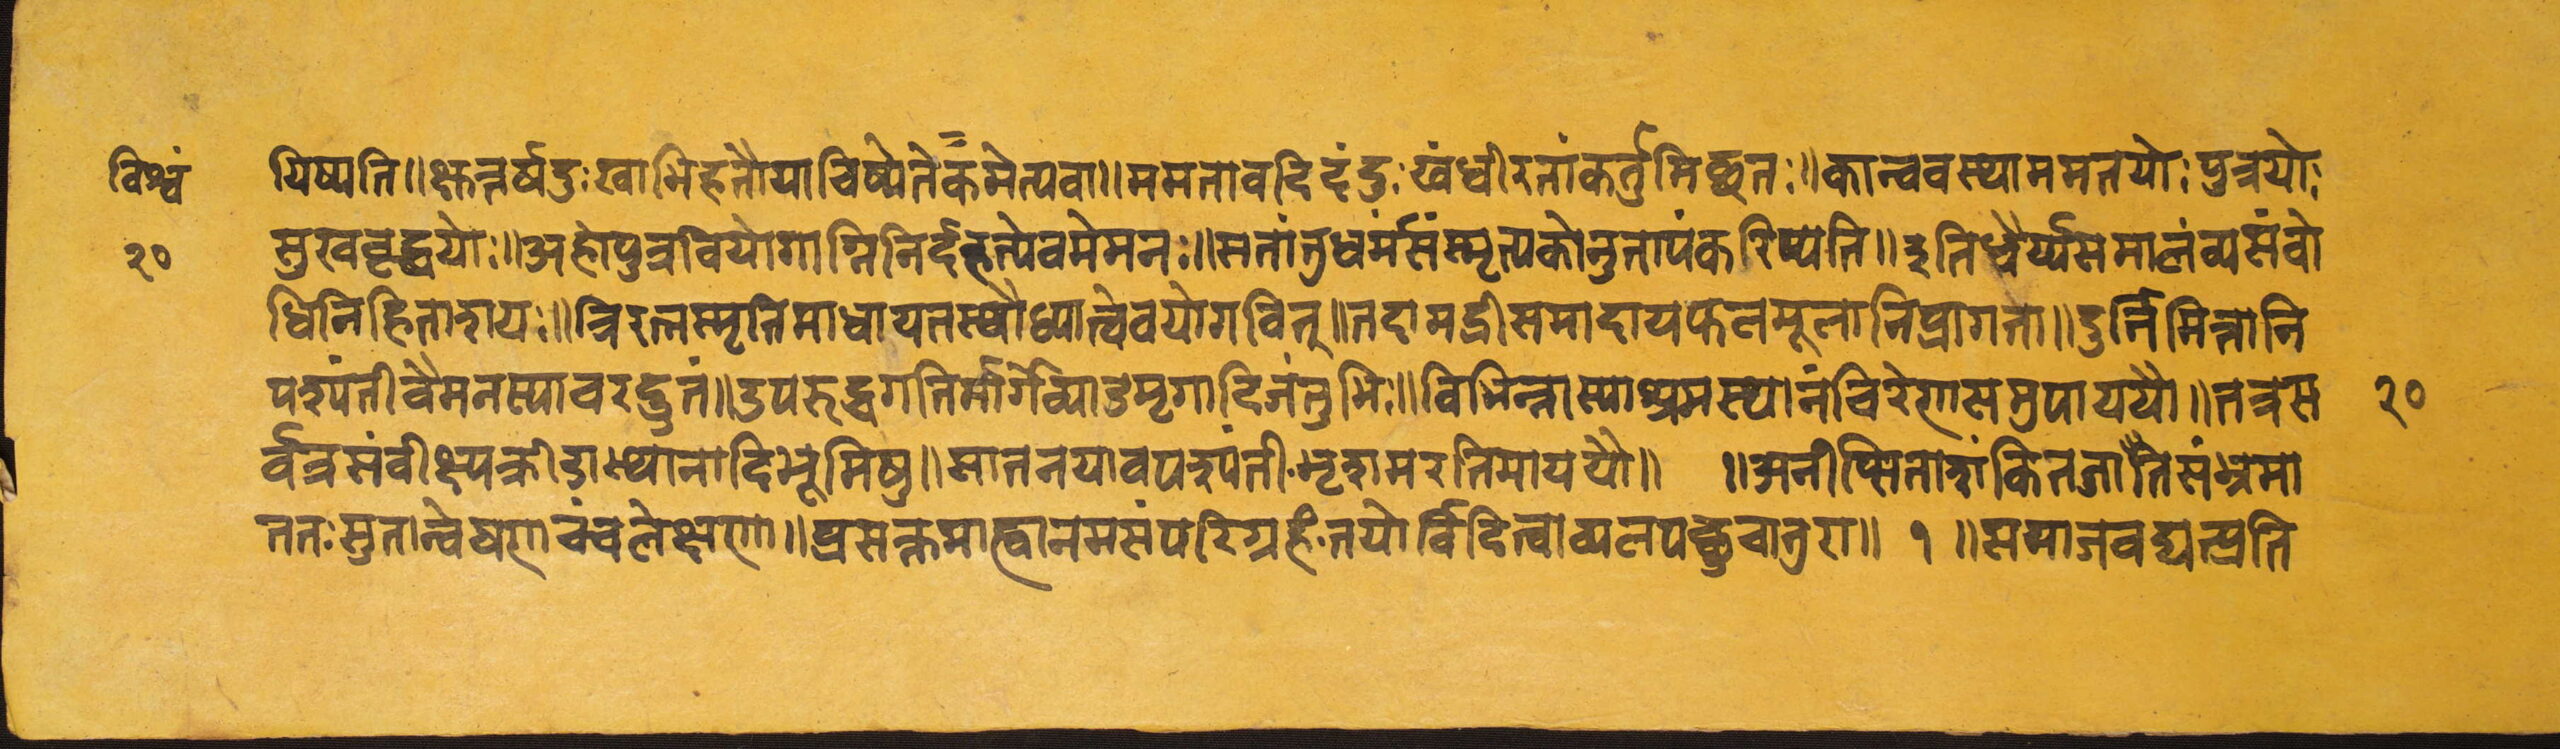 विश्वं
यिष्यति॥क्षुत्तर्षदुःखाभिहतौयाचिष्येतेकमेत्यवा॥ममतावदिदंदुःखंधीरतांकर्तुमिच्छतः॥कान्ववस्थाममतयोःपुत्रयोः
२०
सुखवृद्धयोः॥अहोपुत्रवियोगाग्निनिर्दहत्येवमेमनः॥सतांतुधर्मंसंस्मृत्यकोनुतापंकरिष्यति॥इतिधैर्य्यसमालंव्यसंवो
धिनिहिताशयः॥त्रिरत्नस्मृतिमाधायतस्थौध्यात्वेवयोगवित्॥तदामद्रीसमादायफलमूलानिप्रागता॥दुर्निमित्तानि
पश्यंतीवैमनस्यावरद्रुतं॥उपरुद्धगतिर्मार्गेव्याडमृगादिजंतुभिः॥विभिन्नास्याश्रमस्थानंचिरेणासमुपाययौ॥तत्रस
२०
र्वत्रसंवीक्ष्यक्रीडास्थानादिभूमिषु॥सातनयावपश्यंतीभृशमरतिमाययौ॥ ॥अनीप्सिताशंकितजातसंभ्रमा
ततःसुतान्वेषणचंचलेक्षणा॥प्रसक्तमाह्वानमसंपरिग्रहंतयोर्विदित्वाव्यलपच्छुचातुरा॥ १ ॥समाजवद्यत्प्रति